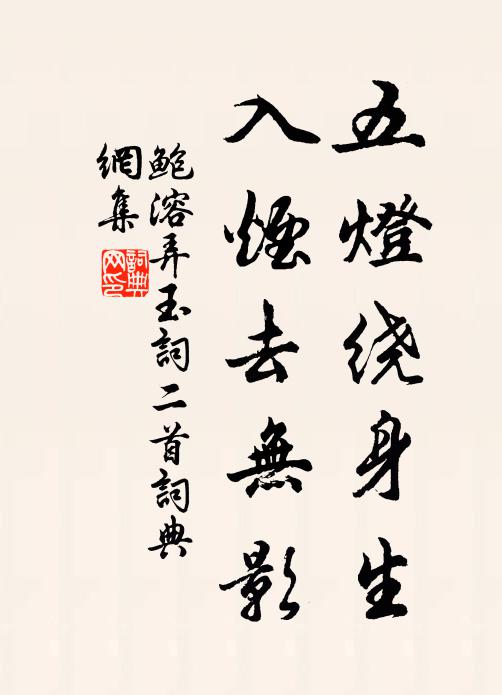 五燈绕身生
入煙去無影
鲍溶弄玉詞二首詞典
網集
詞典
网印